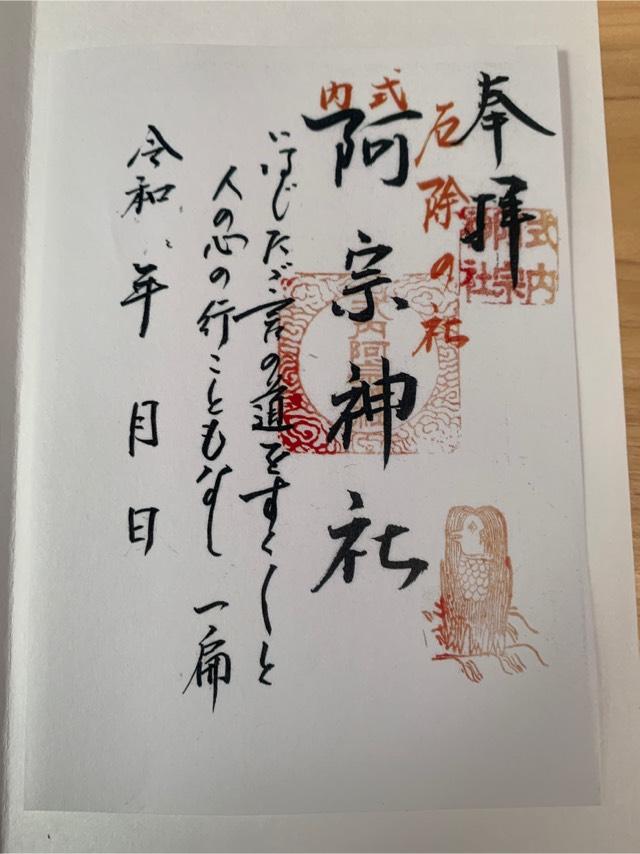 奉拝
式内
阿宗
神社
石除の社
式内
阿宗神社
いなじたゞ言の道をすくしと
人の心の行こともなし 一扁
令和 年 月 日